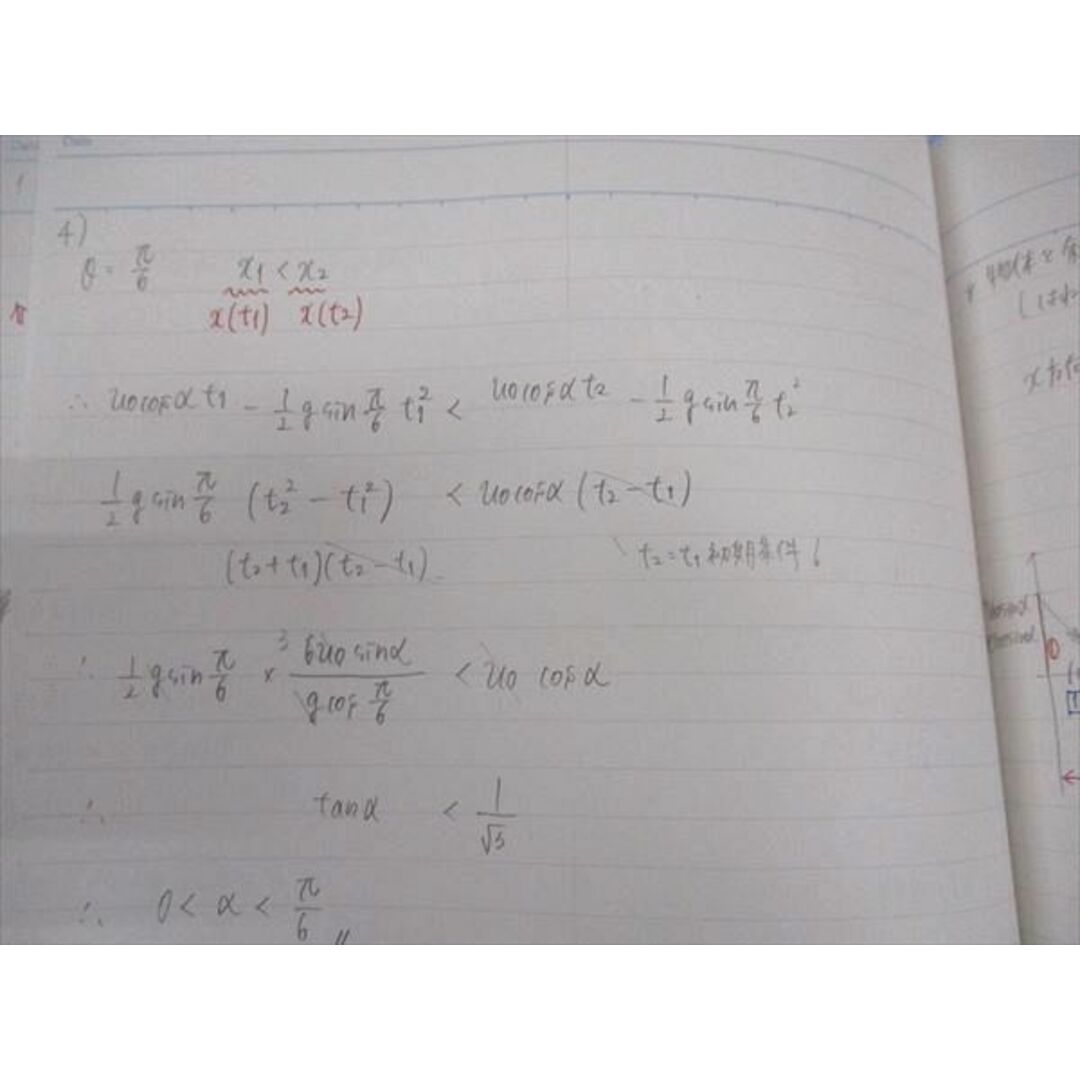 4)
θ = π/6 x₁ < x₂
x(t₁) x(t₂)
∴ u₀cosα t₁ - 1/2 g sin π/6 t₁² < u₀cosα t₂ - 1/2 g sin π/6 t₂²
1/2 g sin π/6 (t₂² - t₁²) < u₀cosα (t₂ - t₁)
(t₂ + t₁)(t₂ - t₁) t₂ = t₁ 初期条件
∴ 1/2 g sin π/6 × ³ 6u₀ sinα / g cos π/6 < u₀ cosα
∴ tanα < 1/√3
∴ 0 < α < π/6 //
物体と